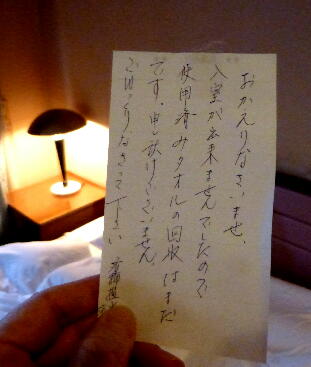 おかえりなさいませ、
入室が出来ませんでしたので
使用済みタオルの回収はまだ
です。申し訳ございません。
ごゆっくりなさって下さい